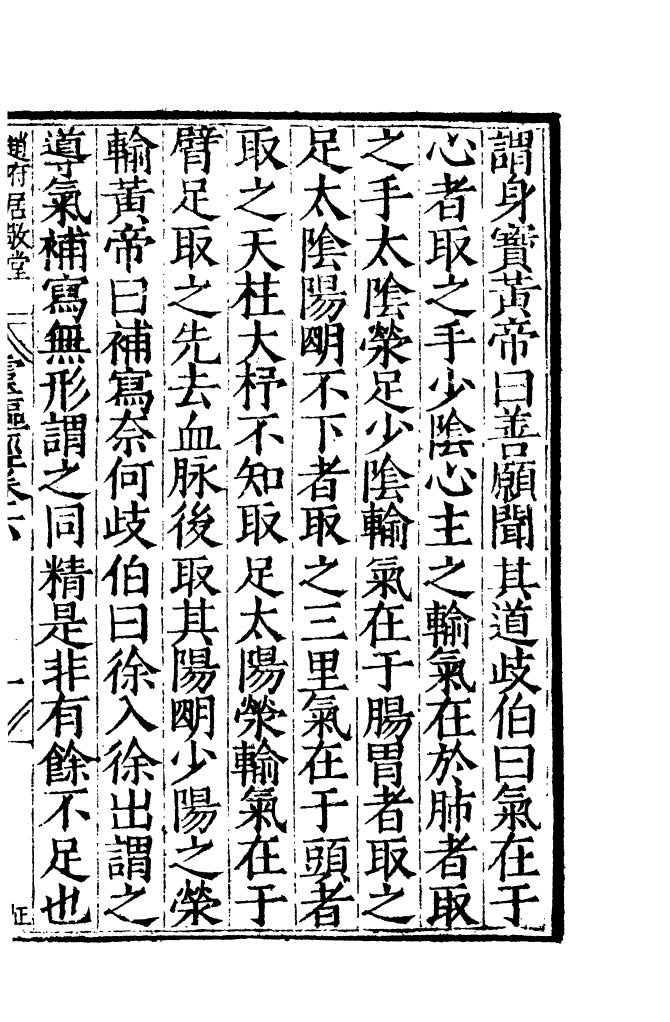 謂身寶黃帝曰善願聞其道歧伯曰氣在于
心者取之手少陰心主之輸氣在於肺者取
之手太陰滎足少陰輸氣在于腸胃者取之
足太陰陽明不下者取之三里氣在于頭者
取之天柱大杼不知取足太陽滎輸氣在于
臂足取之先去血脉後取其陽明少陽之滎
輸黃帝曰補寫奈何歧伯曰徐入徐出謂之
導氣補寫無形謂之同精是非有餘不足也
趙府居敬堂